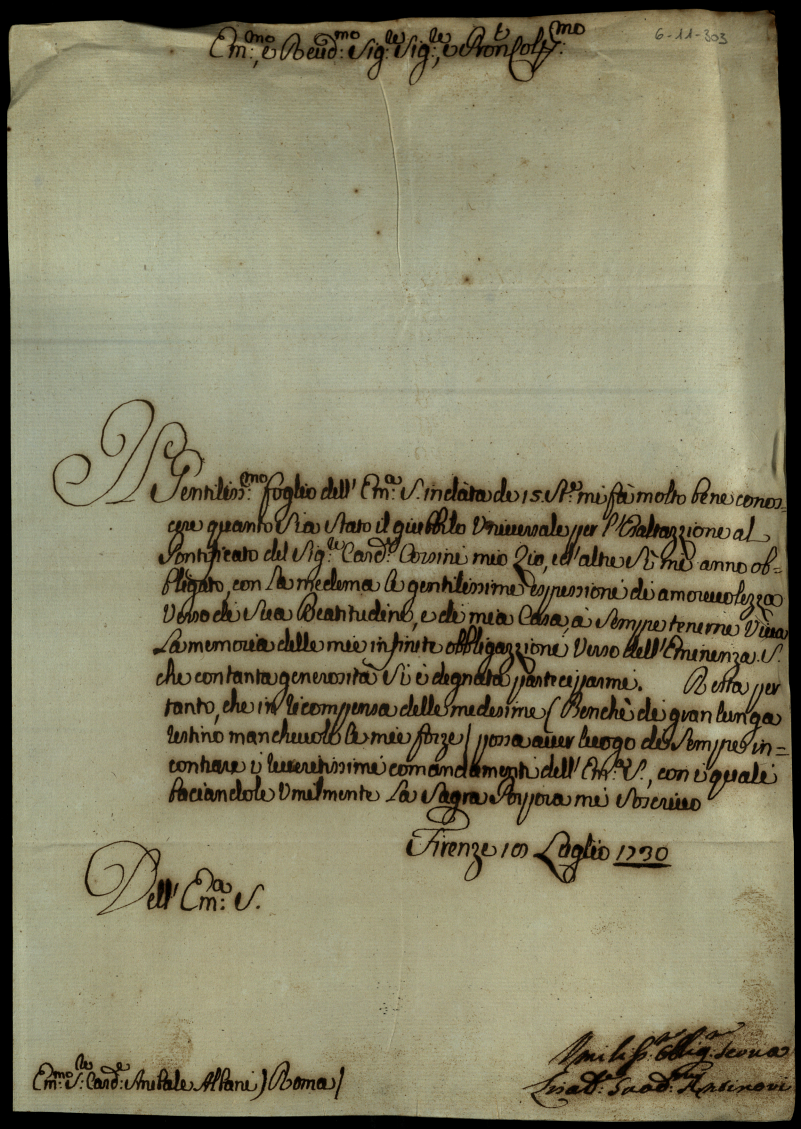 6-11-303
Em.mo, e Reud.mo Sig.re Sig.re, e Pron Col.mo
Il Gentiliss.mo foglio dell' Em.a V. in data de 15. St.e mi fà molto bene conos=
cere quanto sia stato il giubbilo Vniuersale per l'Esaltazzione al
Pontificato del Sig.re Card.le Corsini mio Zio, ed'altre si mi anno ob=
bligato, con la medema le gentilissime espressioni di amoreuolezza
Verso di Sua Beatitudine, e di mia Casa, à sempre tenerne Viua
La memoria delle mie infinite obbligazzione Verso dell'Eminenza V.
che con tanta generosità si è degnata parteciparmi. Resta per
tanto, che in ricompensa delle medesime ( Benchè di gran lunga
restino mancheuole le mie forze / possa auer luogo di sempre in=
contrare i riueritissimi comandamenti dell' Em.a V., con i quali
baciandole Vmilmente La Sagra Porpora mi soscriuo
Firenze 10 Luglio 1730
Dell' Em.a V.
Vmiliss.a Obblig.ma Serua
Em.mo S.re Card.le Anibale Albani ) Roma /